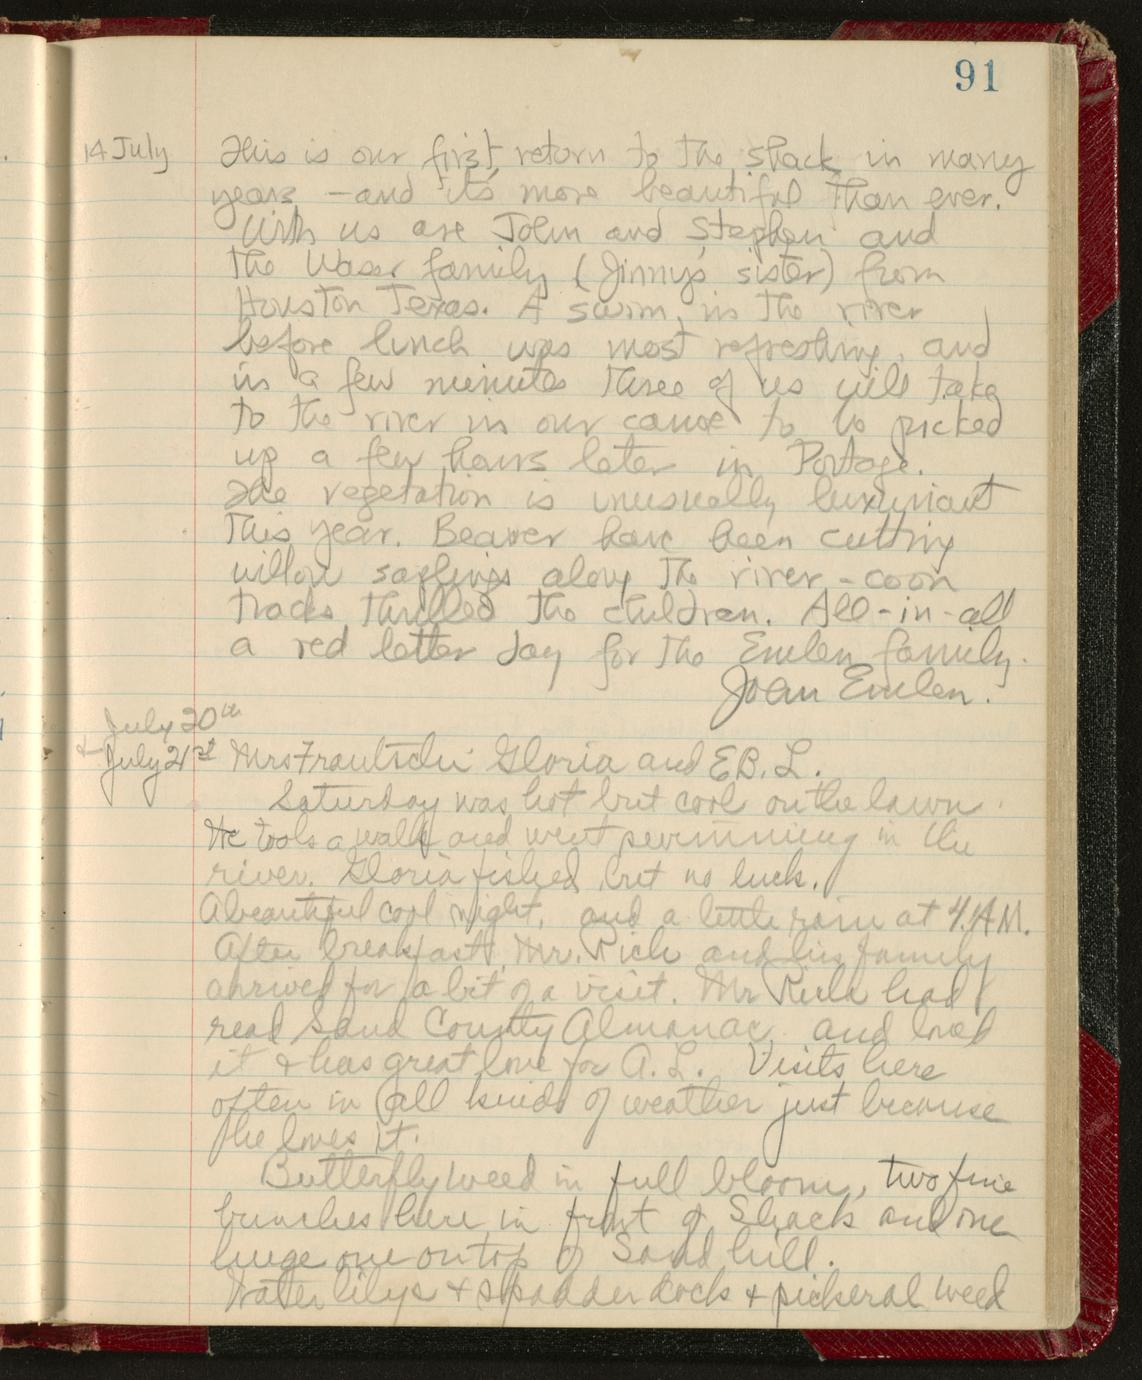 91
14 July This is our first return to the shack in many
years - and its more beautiful than ever.
With us are John and Stephen and
the Waser family (Jinny's sister) from
Houston Texas. A swim in the river
before lunch was most refreshing, and
in a few minutes three of us will take
to the river in our canoe to be picked
up a few hours later in Portage.
The vegetation is unusually luxuriant
this year. Beaver have been cutting
willow saplings along the river - coon
tracks thrilled the children. All-in-all
a red letter day for the Emlen family.
Joan Emlen.
July 20th
& July 21st Mrs Frautschi Gloria and E.B.L.
Saturday was hot but cool on the lawn.
We took a walk and went swimming in the
river. Gloria fished but no luck.
A beautiful cool night, and a little rain at 4 AM.
After breakfast, Mr. Rich and his family
arrived for a bit of a visit. Mr Rich had
read Sand County Almanac and loved
it & has great love for A.L. Visits here
often in all kinds of weather just because
he loves it.
Butterfly weed in full bloom, two fine
bunches here in front of Shack and one
huge one on top of Sand hill.
Water lilys & spadder dock & pickeral weed